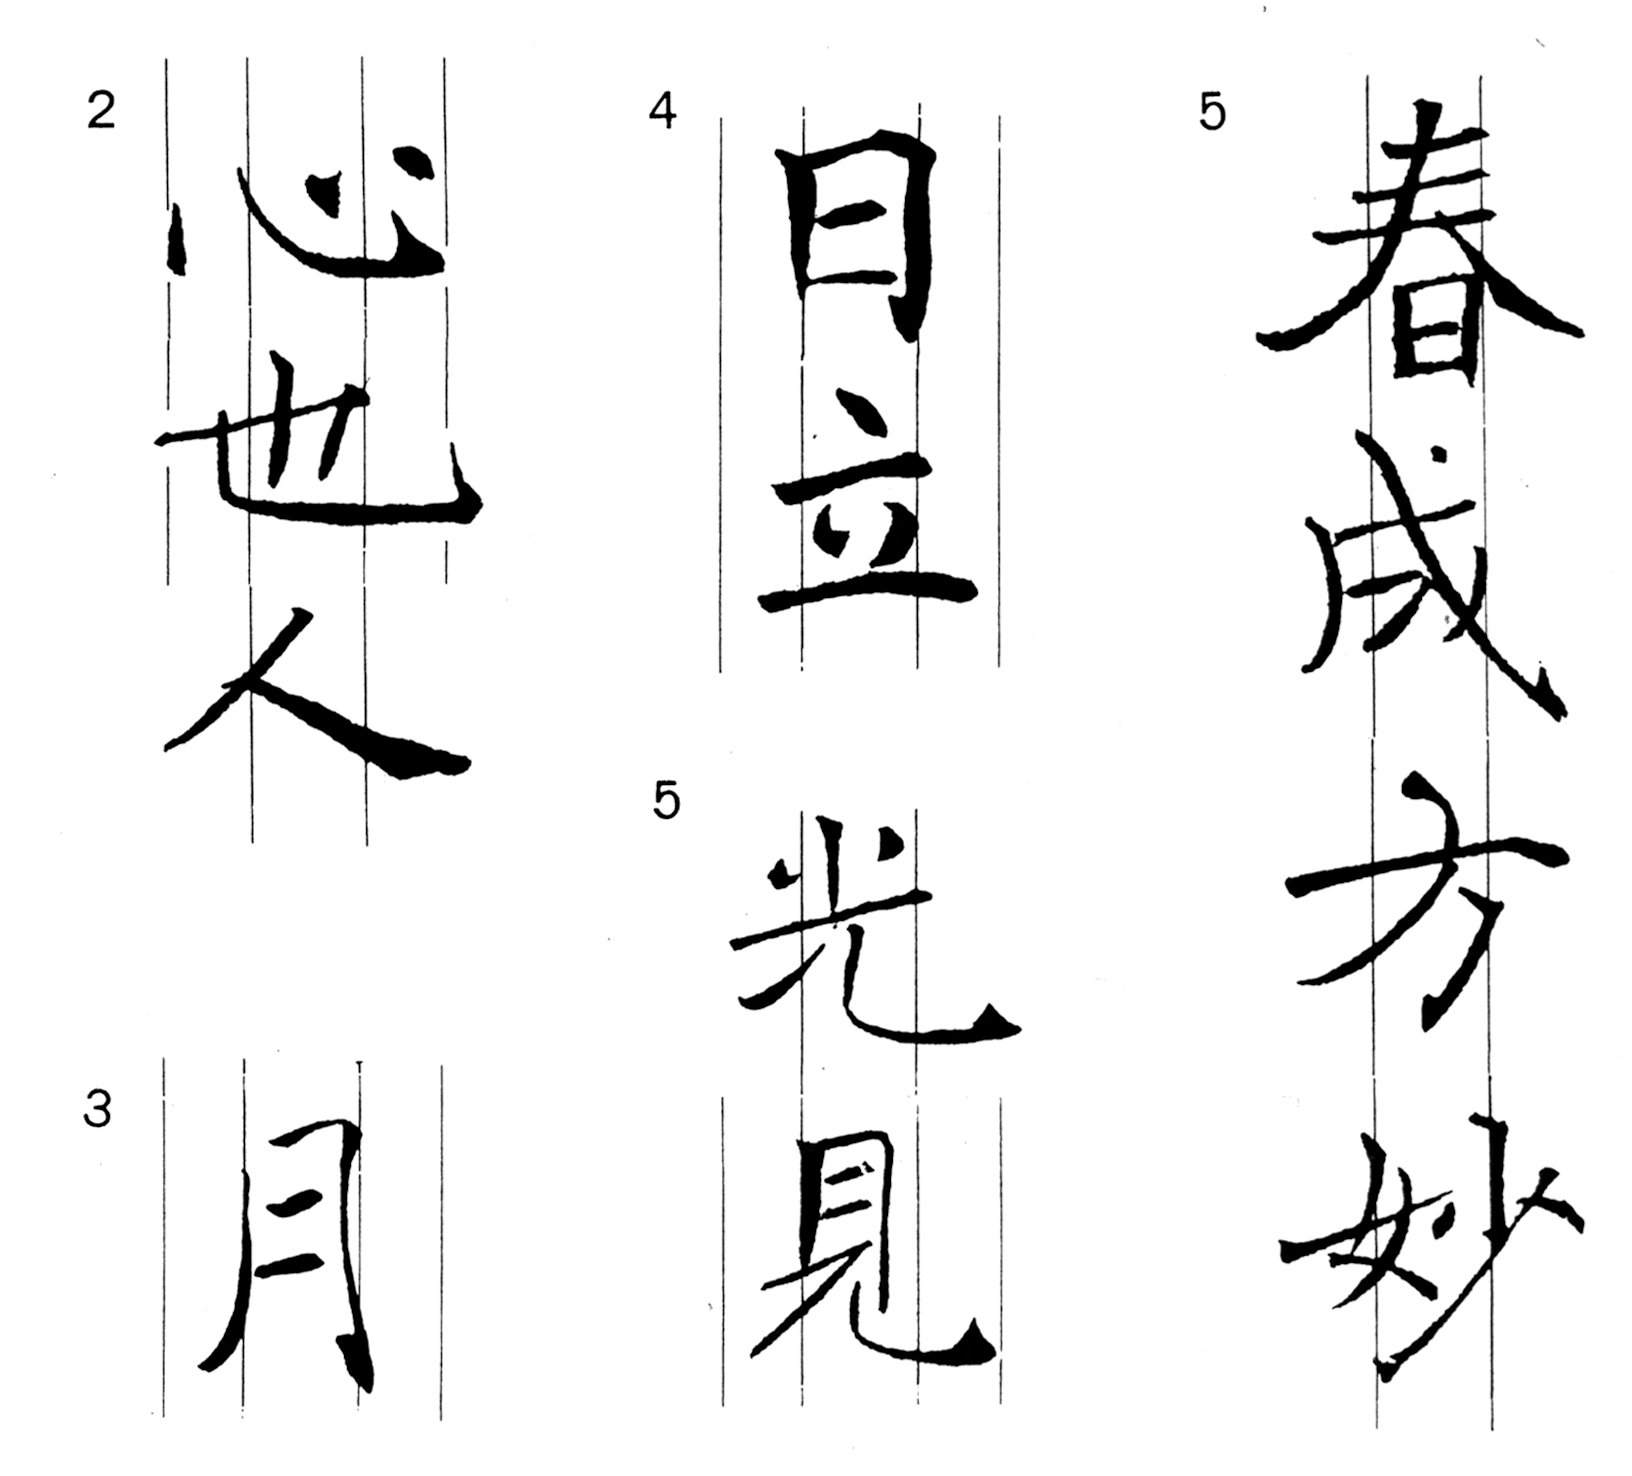 2
心也人
3
月
4
日立
5
光見
5
春成方妙